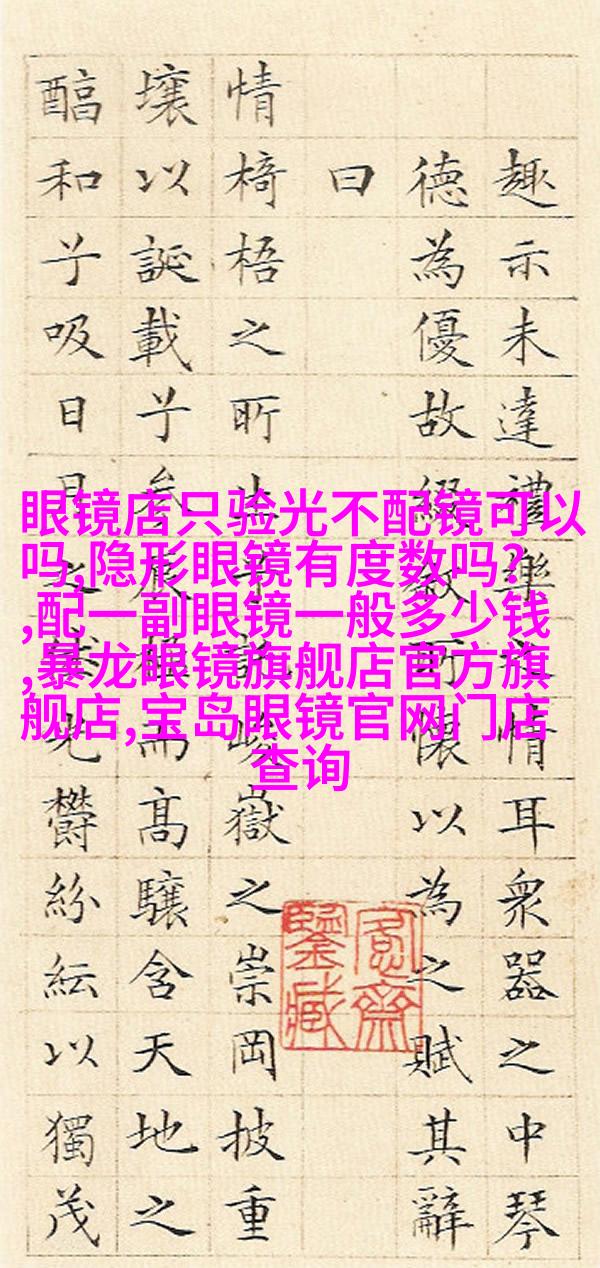 趣示未達禮樂之情耳衆器之中琴
德為優故綴叙所懷以為之賦其辭
曰
情椅梧之所生兮託峻嶽之崇岡披重
壤以誕載兮叅辰極而高驤含天地之
醕和兮吸日月之光鬱紛紜以獨茂
愙齋
鑒藏
眼镜店只验光不配镜可以
吗,隐形眼镜有度数吗?
,配一副眼镜一般多少钱
,暴龙眼镜旗舰店官方旗
舰店,宝岛眼镜官网门店
查询